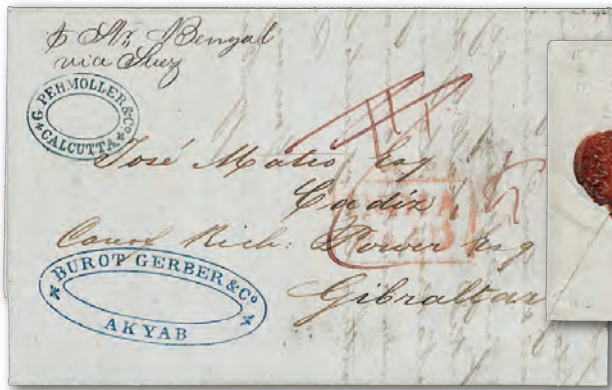 p Str Bengal
via Suez
G. PEHMOLLER & Co.
CALCUTTA
José Mateo Esq
Cadiz
INDIA
Care of Rich: Power Esq
Gibraltar
BUROT GERBER & Co.
AKYAB